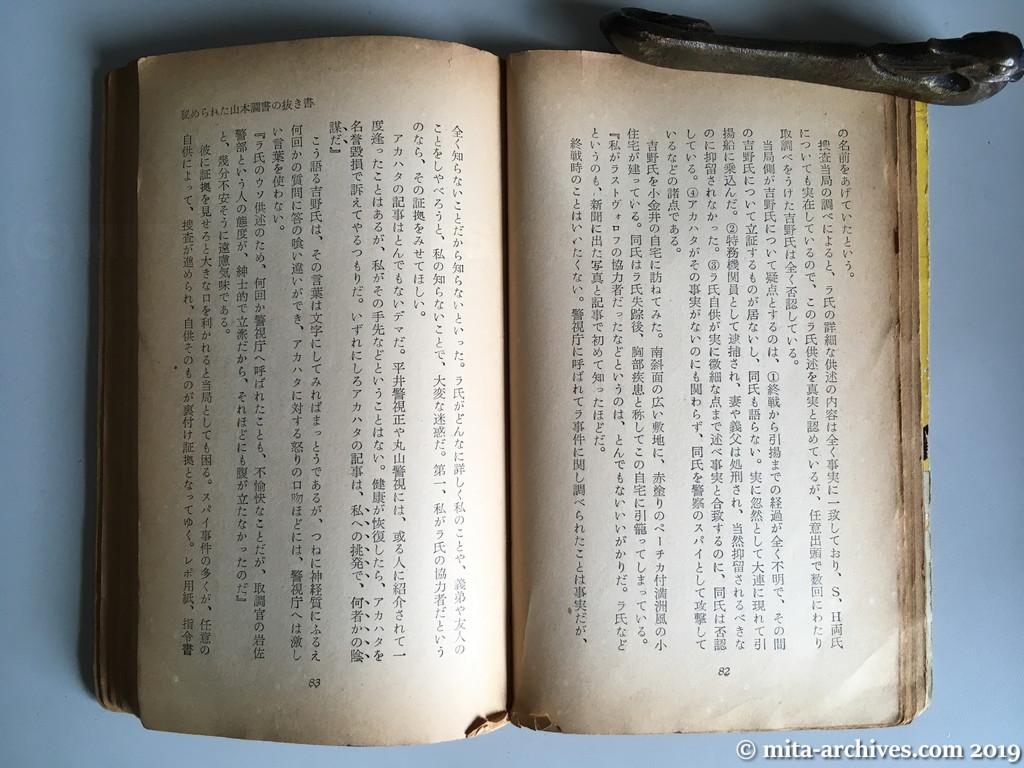 の名前をあげていたという。
捜査当局の調べによると、ラ氏の詳細な供述の内容は全く事実に一致しており、S、H両氏
についても実在しているので、このラ氏供述を真実と認めているが、任意出頭で数回にわたり
取調べをうけた吉野氏は全く否認している。
当局側が吉野氏について疑点とするのは、①終戦から引揚までの経過が全く不明で、その間
の吉野氏について立証するものが居ないし、同氏も語らない。実に忽然として大連に現れて引
揚船に乗込んだ。②特務機関員として逮捕され、妻や義父は処刑され、当然抑留されるべきな
のに抑留されなかった。③ラ氏自供が実に微細な点まで述べ事実と合致するのに、同氏は否認
している。④アカハタがその事実がないのにも関わらず、同氏を警察のスパイとして攻撃して
いるなどの諸点である。
吉野氏を小金井の自宅に訪ねてみた。南斜面の広い敷地に、赤塗りのペーチカ付満洲風の小
住宅が建っている。同氏はラ氏失踪後、胸部疾患と称してこの自宅に引籠ってしまっている。
『私がラストヴォロフの協力者だったなどというのは、とんでもないいいがかりだ。ラ氏など
というのも、新聞に出た写真と記事で初めて知ったほどだ。
終戦時のことはいいたくない。警視庁に呼ばれてラ事件に関し調べられたことは事実だが、
82
秘められた山本調書の抜き書
全く知らないことだから知らないといった。ラ氏がどんなに詳しく私のことや、義弟や友人の
ことをしゃべろうと、私の知らないことで、大変な迷惑だ。第一、私がラ氏の協力者だという
のなら、その証拠をみせてほしい。
アカハタの記事はとんでもないデマだ。平井警視正や丸山警視には、或る人に紹介されて一
度逢ったことはあるが、私がその手先などということはない。健康が恢復したら、アカハタを
名誉毀損で訴えてやるつもりだ。いずれにしろアカハタの記事は、私への挑発で、何者かの陰
謀だ』
こう語る吉野氏は、その言葉は文字にしてみればまっとうであるが、つねに神経質にふるえ
何回かの質問に答の喰い違いができ、アカハタに対する怒りの口吻ほどには、警視庁へは激し
い言葉を使わない。
『ラ氏のウソ供述のため、何回か警視庁へ呼ばれたことも、不愉快なことだが、取調官の岩佐
警部という人の態度が、紳士的で立派だから、それほどにも腹が立たなかったのだ』
と、幾分不安そうに遠慮気味である。
彼に証拠を見せろと大きな口を利かれると当局としても困る。スパイ事件の多くが、任意の
自供によって、捜査が進められ、自供そのものが裏付け証拠となってゆく。レポ用紙、指令書
83
© mita-archives.com 2019